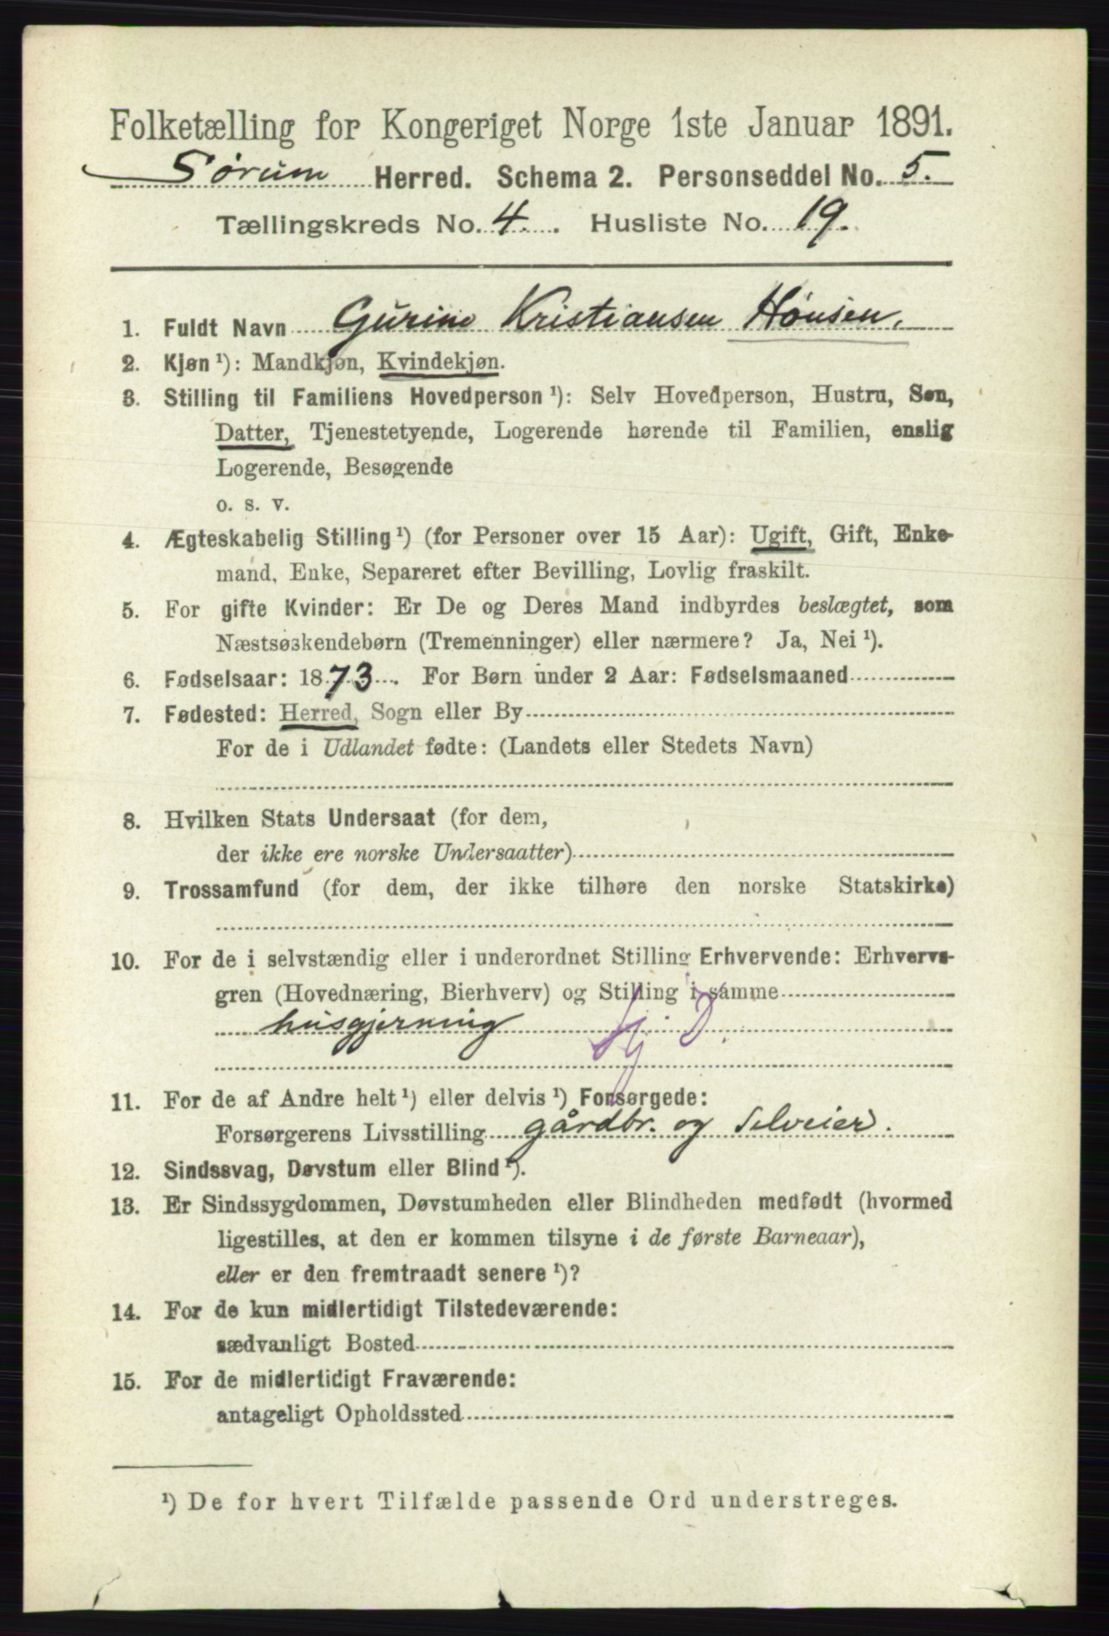 Folketælling for Kongeriget Norge 1ste Januar 1891.
Sørum Herred. Schema 2. Personseddel No. 5.
Tællingskreds No. 4. Husliste No. 19.
1. Fuldt Navn Gurine Kristiansen Hønsen,
2. Kjøn ¹): Mandkjøn, Kvindekjøn.
3. Stilling til Familiens Hovedperson ¹): Selv Hovedperson, Hustru, Søn,
Datter, Tjenestetyende, Logerende hørende til Familien, enslig
Logerende, Besøgende
o. s. v.
4. Ægteskabelig Stilling ¹) (for Personer over 15 Aar): Ugift, Gift, Enke-
mand, Enke, Separeret efter Bevilling, Lovlig fraskilt.
5. For gifte Kvinder: Er De og Deres Mand indbyrdes beslægtet, som
Næstsøskendebørn (Tremenninger) eller nærmere? Ja, Nei ¹).
6. Fødselsaar: 1873. For Børn under 2 Aar: Fødselsmaaned
7. Fødested: Herred, Sogn eller By
For de i Udlandet fødte: (Landets eller Stedets Navn)
8. Hvilken Stats Undersaat (for dem,
der ikke ere norske Undersaatter)
9. Trossamfund (for dem, der ikke tilhøre den norske Statskirke)
10. For de i selvstændig eller i underordnet Stilling Erhvervende: Erhvervs-
gren (Hovednæring, Bierhverv) og Stilling i samme
husgjerning Hj. D.
11. For de af Andre helt ¹) eller delvis ¹) Forsørgede:
Forsørgerens Livsstilling gårdbr. og selveier.
12. Sindssvag, Døvstum eller Blind ¹).
13. Er Sindssygdommen, Døvstumheden eller Blindheden medfødt (hvormed
ligestilles, at den er kommen tilsyne i de første Barneaar),
eller er den fremtraadt senere ¹)?
14. For de kun midlertidigt Tilstedeværende:
sædvanligt Bosted
15. For de midlertidigt Fraværende:
antageligt Opholdssted
¹) De for hvert Tilfælde passende Ord understreges.